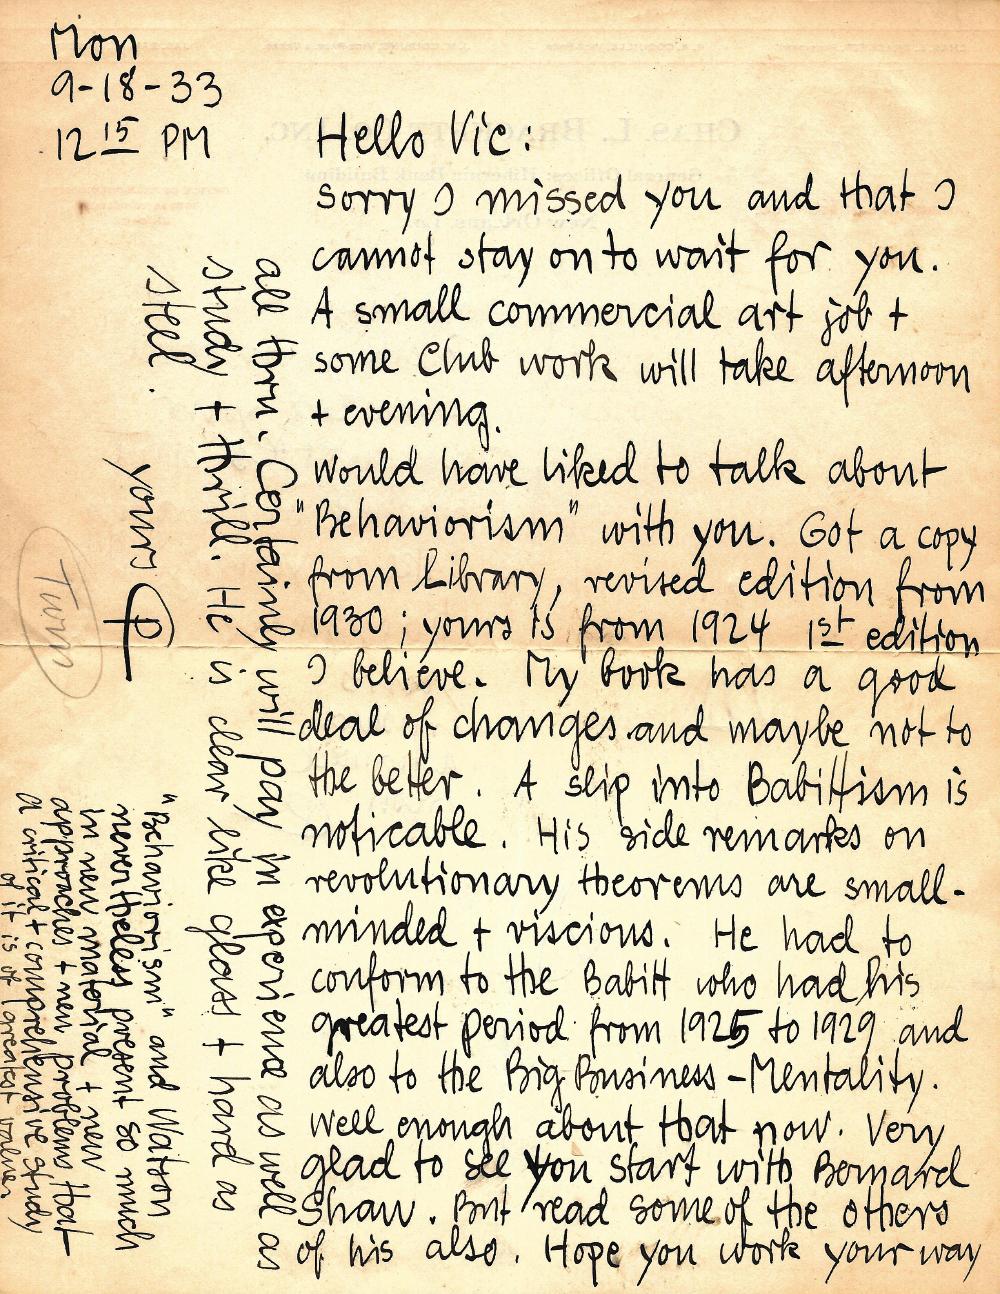 Mon
9-18-33
12 15 PM
Hello Vic:
Sorry I missed you and that I
cannot stay on to wait for you.
A small commercial art job +
some Club work will take afternoon
+ evening.
Would have liked to talk about
"Behaviorism" with you. Got a copy
from Library, revised edition from
1930; yours is from 1924 1st edition
I believe. My book has a good
deal of changes and maybe not to
the better. A slip into Babittism is
noticable. His side remarks on
revolutionary theorems are small-
minded + viscious. He had to
conform to the Babitt who had his
greatest period from 1925 to 1929 and
also to the Big Business-Mentality.
Well enough about that now. Very
glad to see you start with Bernard
Shaw. But read some of the others
of his also. Hope you work your way
all thru. Certainly will pay in experience as well as
study + thrill. He is clear like glass + hard as
steel.
yours
"Behaviorism" and Watson
nevertheless present so much
in new material + new
approaches + new problems that
a critical + comprehensive study
of it is of greatest value.
Turn